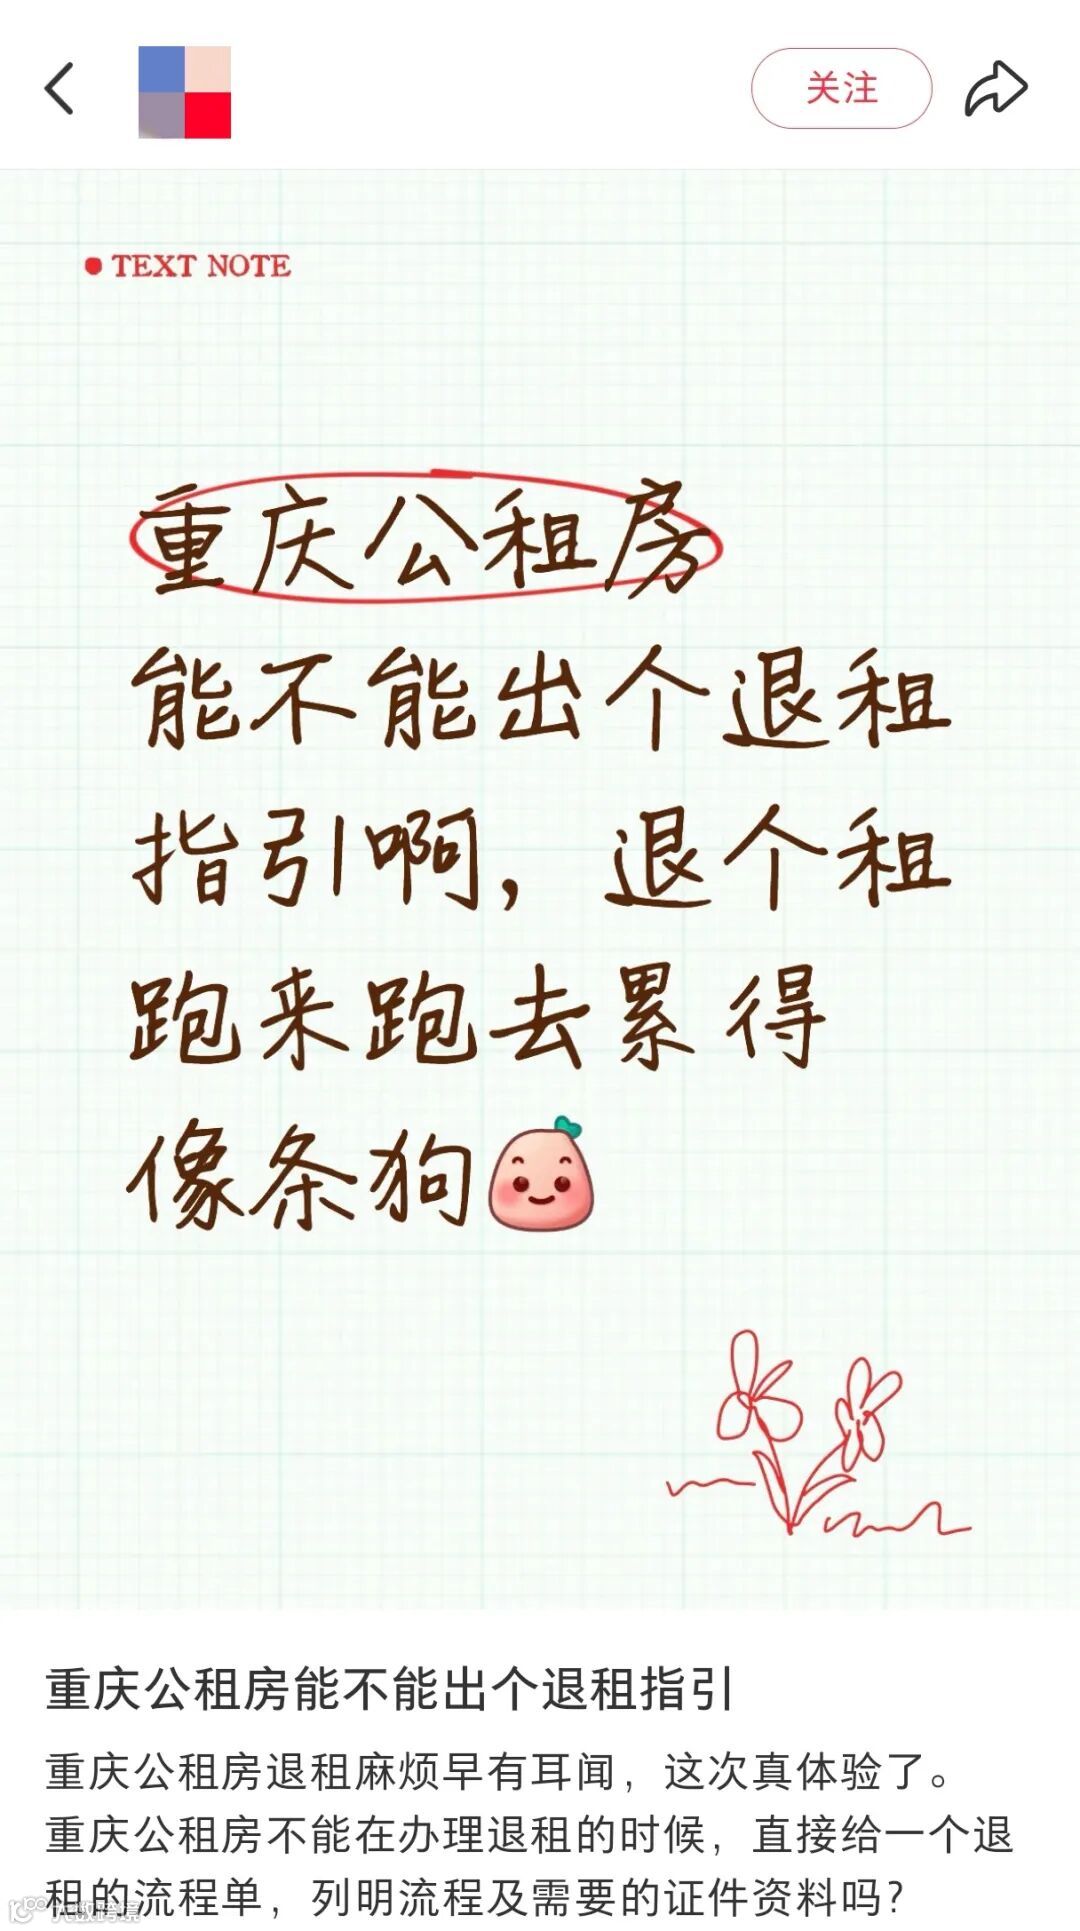 关注
TEXT NOTE
重庆公租房
能不能出个退租
指引啊，退个租
跑来跑去累得
像条狗
重庆公租房能不能出个退租指引
重庆公租房退租麻烦早有耳闻，这次真体验了。
重庆公租房不能在办理退租的时候，直接给一个退
租的流程单，列明流程及需要的证件资料吗？
大数跨境